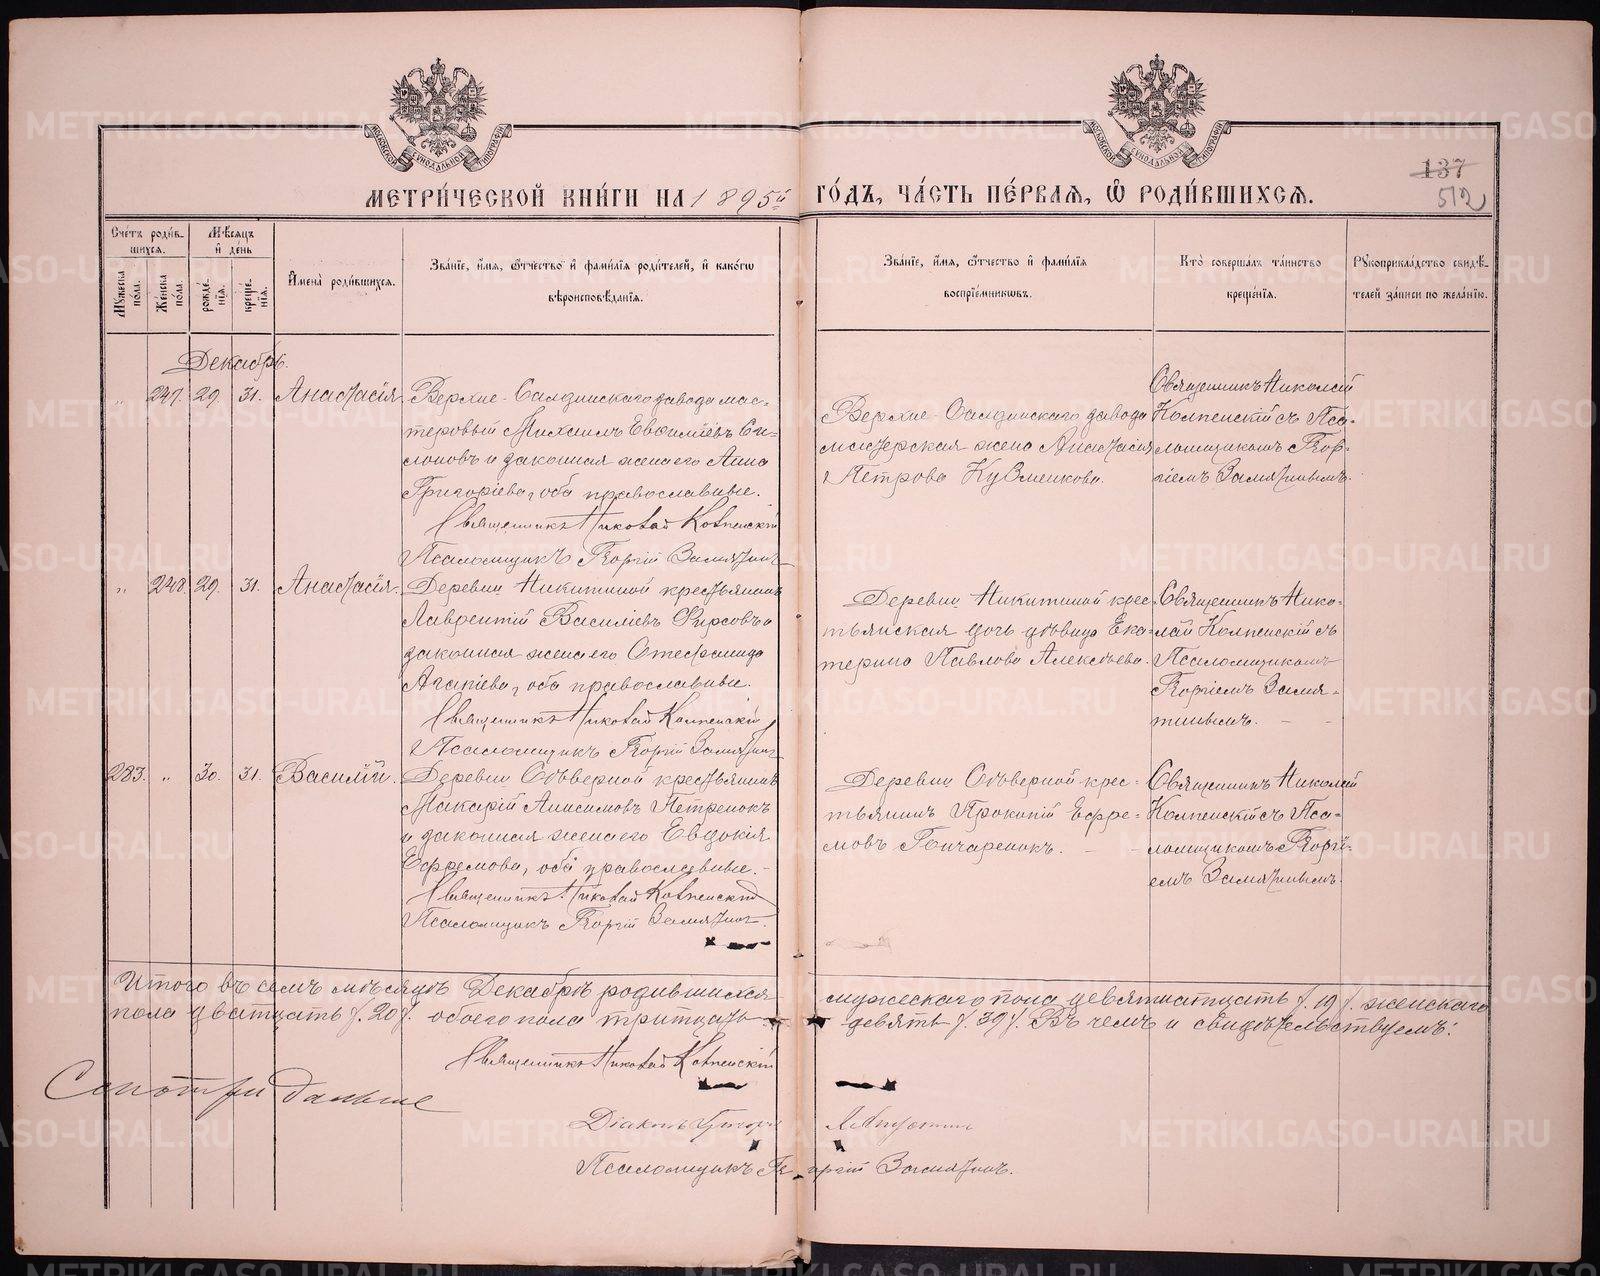 МЕТРИ́ЧЕСКОЙ КНИ́ГИ НА 1895й ГО́ДЪ, ЧА́СТЬ ПЕ́РВАЯ, Ѿ РОДИ́ВШИХСЯ.
137
512
Сче́тъ роди́вшихся.
Мѣсяцъ и день
Имена̀ роди́вшихся.
Зва́нїе, и́мя, ѻ́тчество и фами́лїя роди́телей, и како́гѡ вѣроисповѣ́данїя.
Зва́нїе, и́мя, ѻ́тчество и фами́лїя воспрїе́мникѡвъ.
Кто̀ соверша́лъ та́инство креще́нїя.
Рукоприкла́дство свидѣ́телей за́писи по жела́нїю.
Му́жеска пола.
Же́нска пола.
рожде́нїя.
креще́нїя.
Декабрь.
„ 247. 29. 31. Анастасія.
Верхне-Салдинскаго завода мас-
теровый Михаилъ Евфиміевъ Си-
моновъ и законная жена его Анна
Григоріева, оба православные.
Священникъ Николай Колпенскій
Псаломщикъ Георгій Замятинъ
Верхне-Салдинскаго завода
мастерская жена Анастасія
Петрова Кузменкова.
Священникъ Николай
Колпенскій съ Пса-
ломщикомъ Геор-
гіемъ Замятинымъ.
„ 248. 29. 31. Анастасія.
Деревни Никитиной крестьянинъ
Лаврентій Василіевъ Фирсовъ и
законная жена его Стефанида
Агапіева, оба православные.
Священникъ Николай Колпенскій
Псаломщикъ Георгій Замятинъ
Деревни Никитиной крес-
тьянская дочь дѣвица Ека-
терина Павлова Алексѣева.
Священникъ Нико-
лай Колпенскій съ
Псаломщикомъ
Георгіемъ Замя-
тинымъ.
283. „ 30. 31. Василій.
Деревни Сѣверной крестьянинъ
Макарій Анисимовъ Петренокъ
и законная жена его Евдокія
Ефремова, оба православные.
Священникъ Николай Колпенскій
Псаломщикъ Георгій Замятинъ.
Деревни Сѣверной крес-
тьянинъ Прокопій Ефре-
мовъ Гончаренокъ.
Священникъ Николай
Колпенскій съ Пса-
ломщикомъ Георгі-
емъ Замятинымъ.
Итого въ семъ мѣсяцѣ Декабрѣ родившихся мужескаго пола девятнатцать /. 19 /. женскаго
пола дватцать /. 20 /. обоего пола тритцать девять /. 39 /. Въ чемъ и свидѣтельствуемъ:
Священникъ Николай Колпенскій
Смотри дальше
Діаконъ
Псаломщикъ Георгій Замятинъ.
METRIKI.GASO-URAL.RU